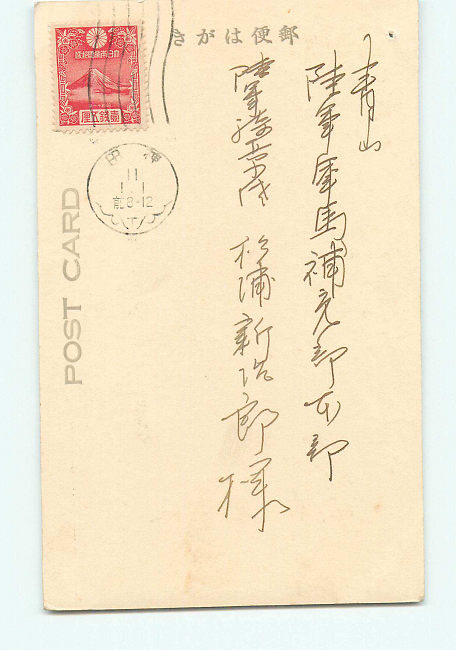 郵便はがき
青山
陸軍軍馬補充部本部
陸軍騎兵大佐 杉浦新治郎様
壹錢五厘
神田
11
1.1
前8-12
POST CARD